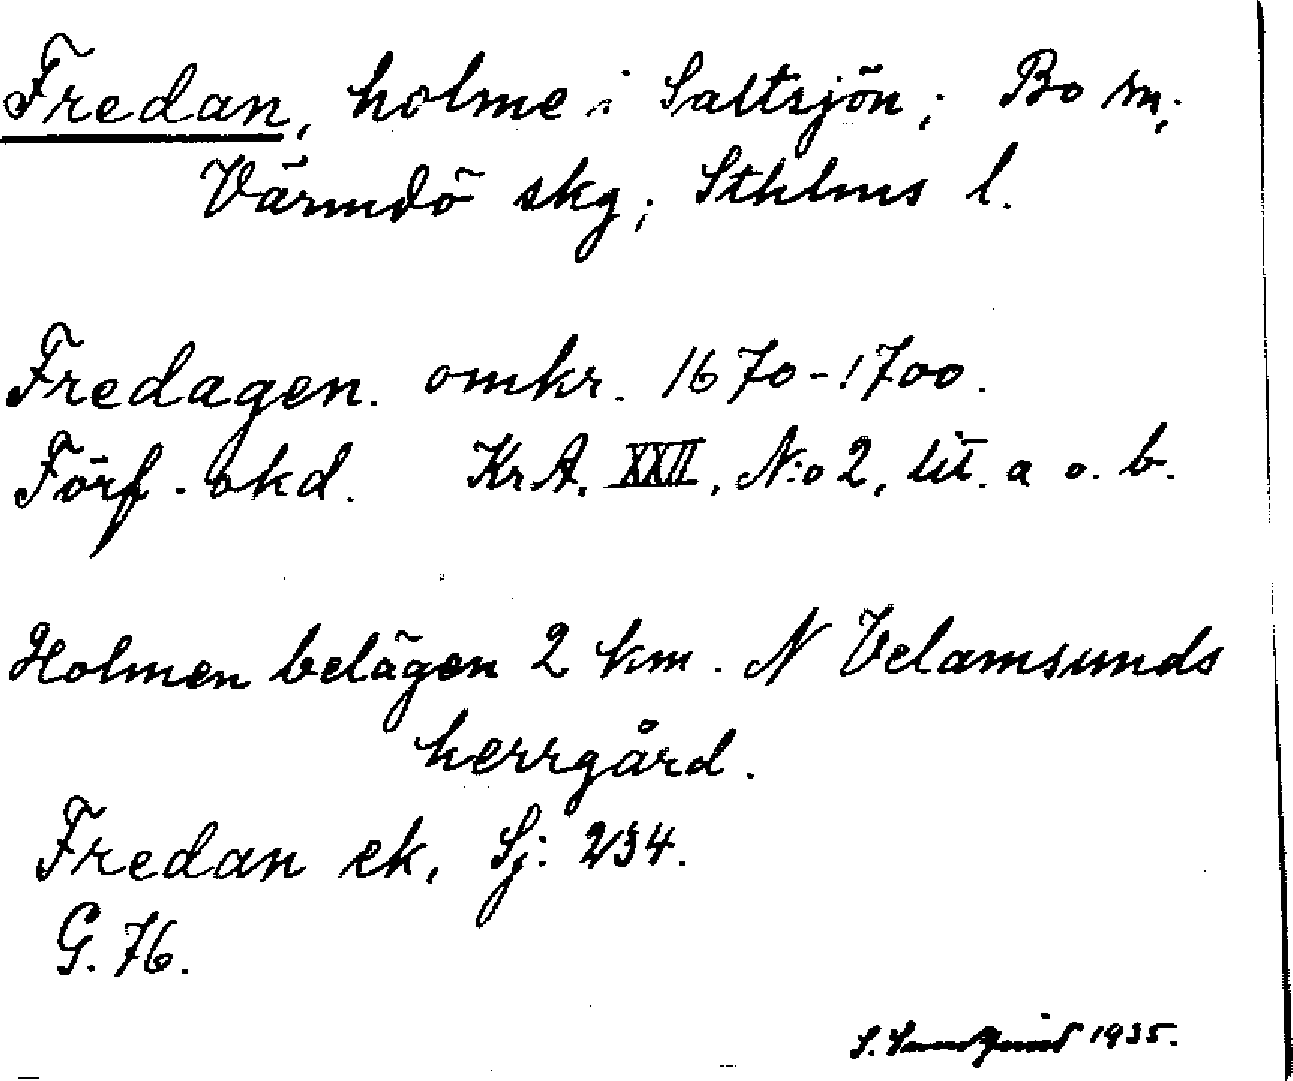 Fredan, holme i Saltsjön; Bo sn;
Värmdö skg; Sthlms l.
Fredagen. omkr. 1670-1700.
Förf. okd. KrA. XXII, N:o 2, lit. a o. b.
Holmen belägen 2 km. N Velamsunds
herrgård.
Fredan ek. Sj: 234.
G. 76.
S. 1935.